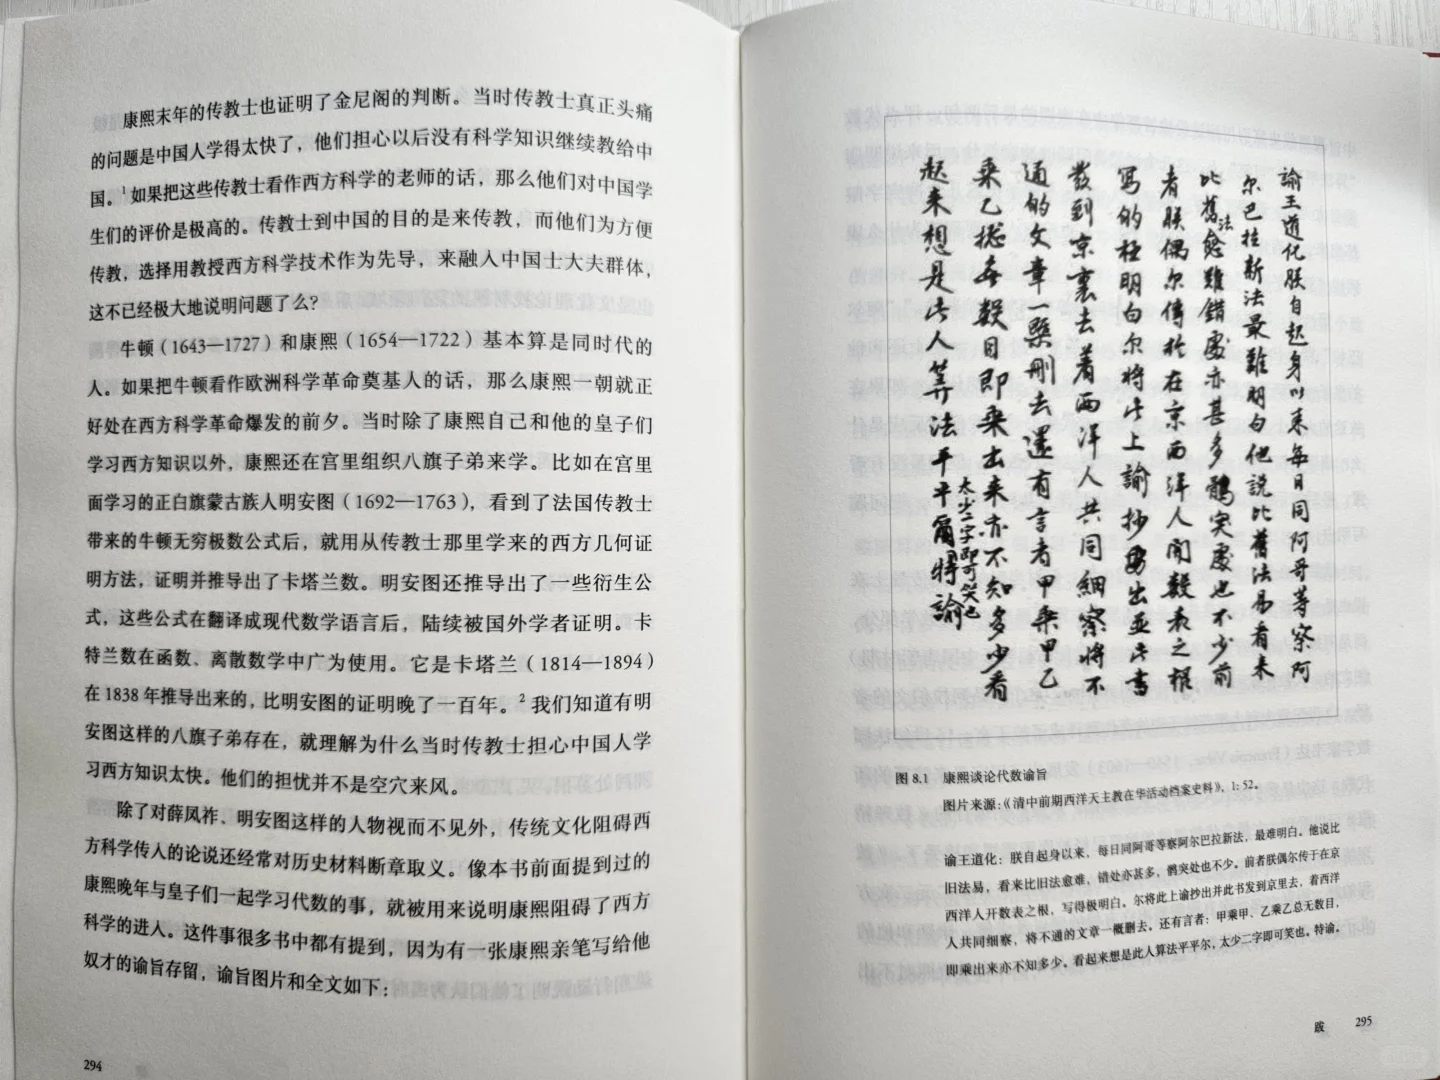 康熙末年的传教士也证明了金尼阁的判断。当时传教士真正头痛
的问题是中国人学得太快了，他们担心以后没有科学知识继续教给中
国。1如果把这些传教士看作西方科学的老师的话，那么他们对中国学
生们的评价是极高的。传教士到中国的目的是来传教，而他们为方便
传教，选择用教授西方科学技术作为先导，来融入中国士大夫群体，
这不已经极大地说明问题了么？
牛顿（1643—1727）和康熙（1654—1722）基本算是同时代的
人。如果把牛顿看作欧洲科学革命奠基人的话，那么康熙一朝就正
好处在西方科学革命爆发的前夕。当时除了康熙自己和他的皇子们
学习西方知识以外，康熙还在宫里组织八旗子弟来学。比如在宫里
面学习的正白旗蒙古族人明安图（1692—1763），看到了法国传教士
带来的牛顿无穷极数公式后，就用从传教士那里学来的西方几何证
明方法，证明并推导出了卡塔兰数。明安图还推导出了一些衍生公
式，这些公式在翻译成现代数学语言后，陆续被国外学者证明。卡
特兰数在函数、离散数学中广为使用。它是卡塔兰（1814—1894）
在1838年推导出来的，比明安图的证明晚了一百年。2我们知道有明
安图这样的八旗子弟存在，就理解为什么当时传教士担心中国人学
习西方知识太快。他们的担忧并不是空穴来风。
除了对薛凤祚、明安图这样的人物视而不见外，传统文化阻碍西
方科学传人的论说还经常对历史材料断章取义。像本书前面提到过的
康熙晚年与皇子们一起学习代数的事，就被用来说明康熙阻碍了西方
科学的进人。这件事很多书中都有提到，因为有一张康熙亲笔写给他
奴才的谕旨存留，谕旨图片和全文如下：
294
諭王道化朕自起身以来每日同阿哥等察阿
尔巴拉新法最难明白他説比舊法易看来
比舊法愈難錯處亦甚多鶻突處也不少前
者朕偶尔傳於在京西洋人開數表之根
寫的極明白尔将此上諭抄出並此書
發到京裏去着西洋人共同細察將不
通的文章一槩删去還有言者甲乘甲乙
乘乙總無數目即乘出来亦不知多少看
起来想是此人算法平平爾特諭
太少二字即可笑也
图 8.1 康熙谈论代数谕旨
图片来源：《清中前期西洋天主教在华活动档案史料》，1: 52。
谕王道化：朕自起身以来，每日同阿哥等察阿尔巴拉新法，最难明白。他说比
旧法易，看来比旧法愈难，错处亦甚多，鹘突处也不少。前者朕偶尔传于在京
西洋人开数表之根，写得极明白。尔将此上谕抄出并此书发到京里去，着西洋
人共同细察，将不通的文章一概删去。还有言者：甲乘甲、乙乘乙总无数目，
即乘出来亦不知多少。看起来想是此人算法平平尔，太少二字即可笑也。特谕。
跋 295